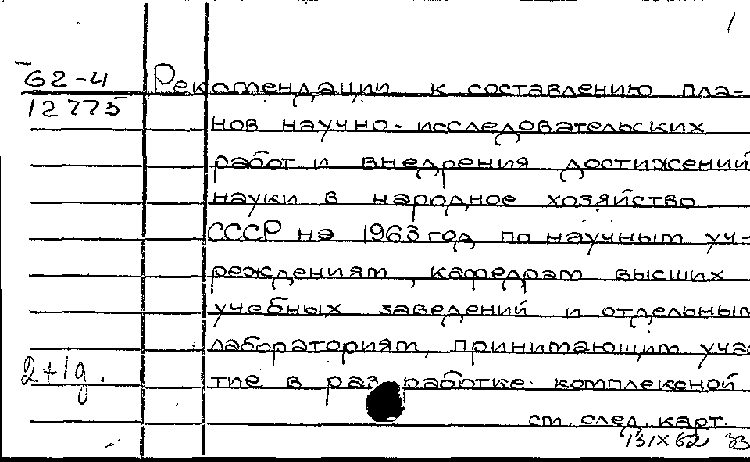 1
62-4
12775
Рекомендации к составлению пла-
нов научно-исследовательских
работ и внедрения достижений
науки в народное хозяйство
СССР на 1963 год по научным уч-
реждениям, кафедрам высших
учебных заведений и отдельным
лабораториям, принимающим учас
тие в разработке комплексной
2+1д.
см след. карт.
13 IX 62